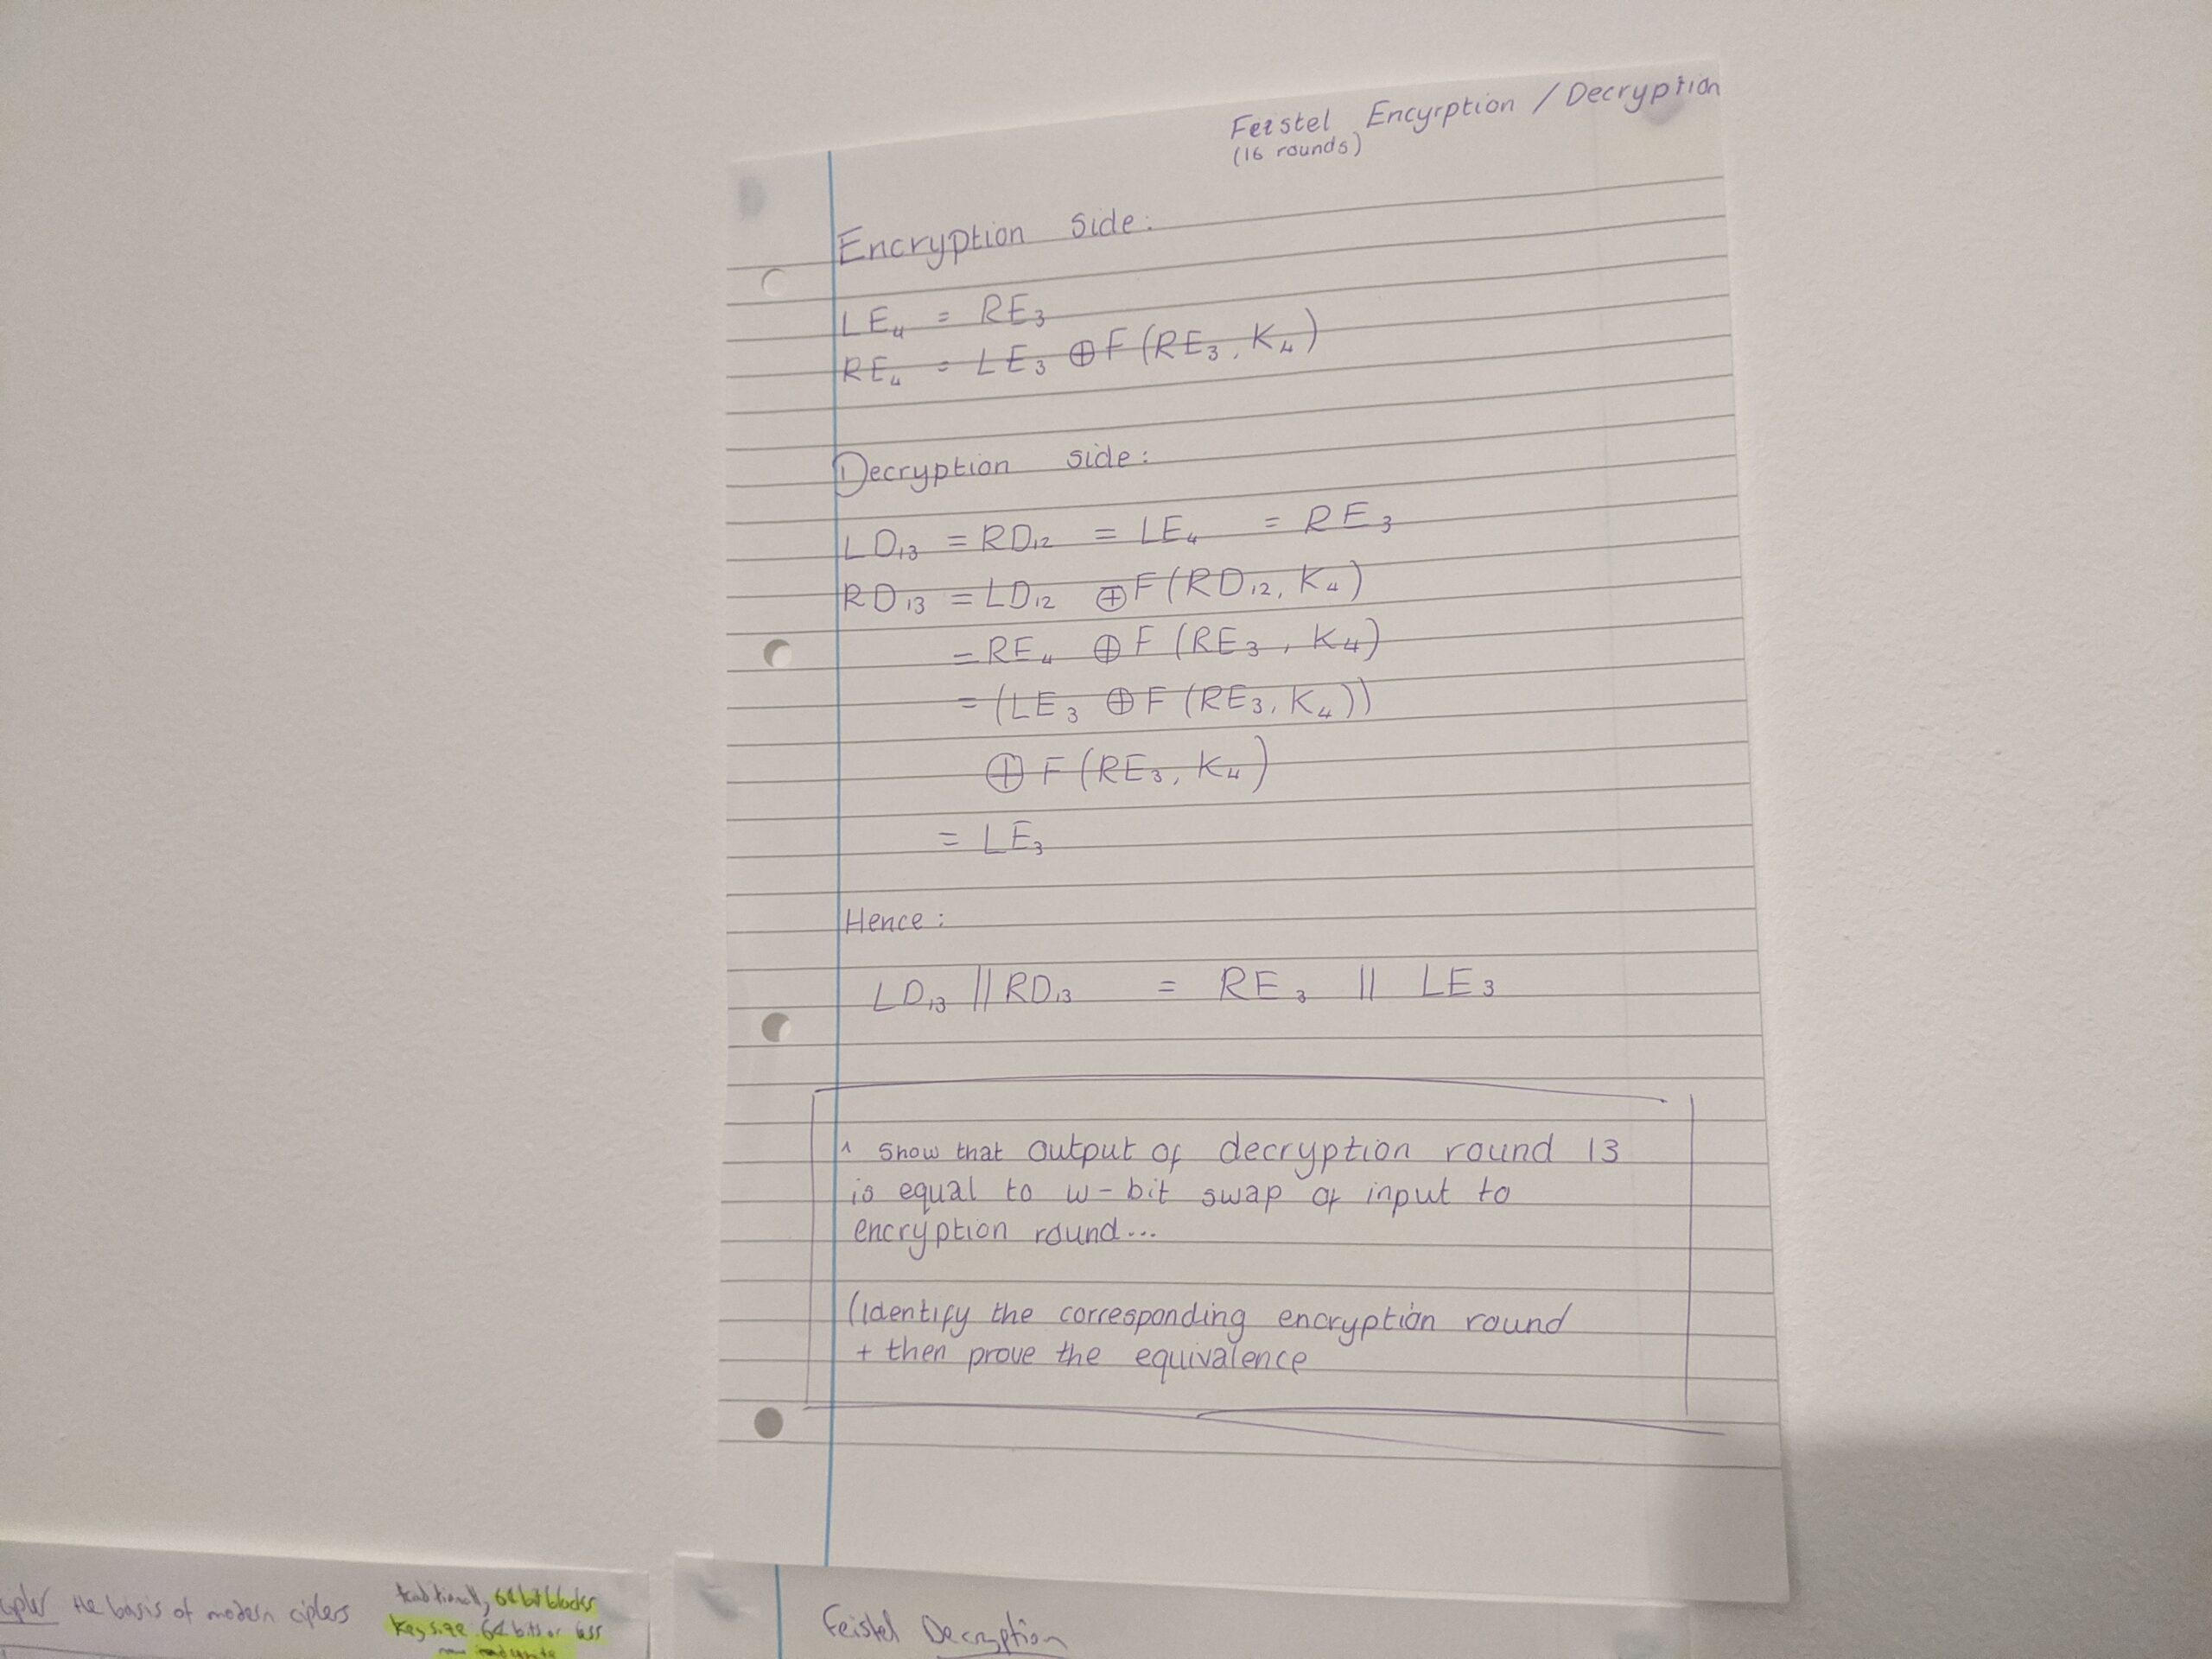 Feistel Encyrption / Decryption
(16 rounds)
Encryption side:
LE₄ = RE₃
RE₄ = LE₃ ⊕ F (RE₃, K₄)
Decryption side:
LD₁₃ = RD₁₂ = LE₄ = RE₃
RD₁₃ = LD₁₂ ⊕ F (RD₁₂, K₄)
= RE₄ ⊕ F (RE₃, K₄)
= (LE₃ ⊕ F (RE₃, K₄))
⊕ F (RE₃, K₄)
= LE₃
Hence:
LD₁₃ || RD₁₃ = RE₃ || LE₃
^ Show that output of decryption round 13
is equal to w-bit swap of input to
encryption round...
(Identify the corresponding encryption round
+ then prove the equivalence
the basis of modern ciphers
traditionally, 64 bit blocks
key size 64 bits or less
Feistel Decryption